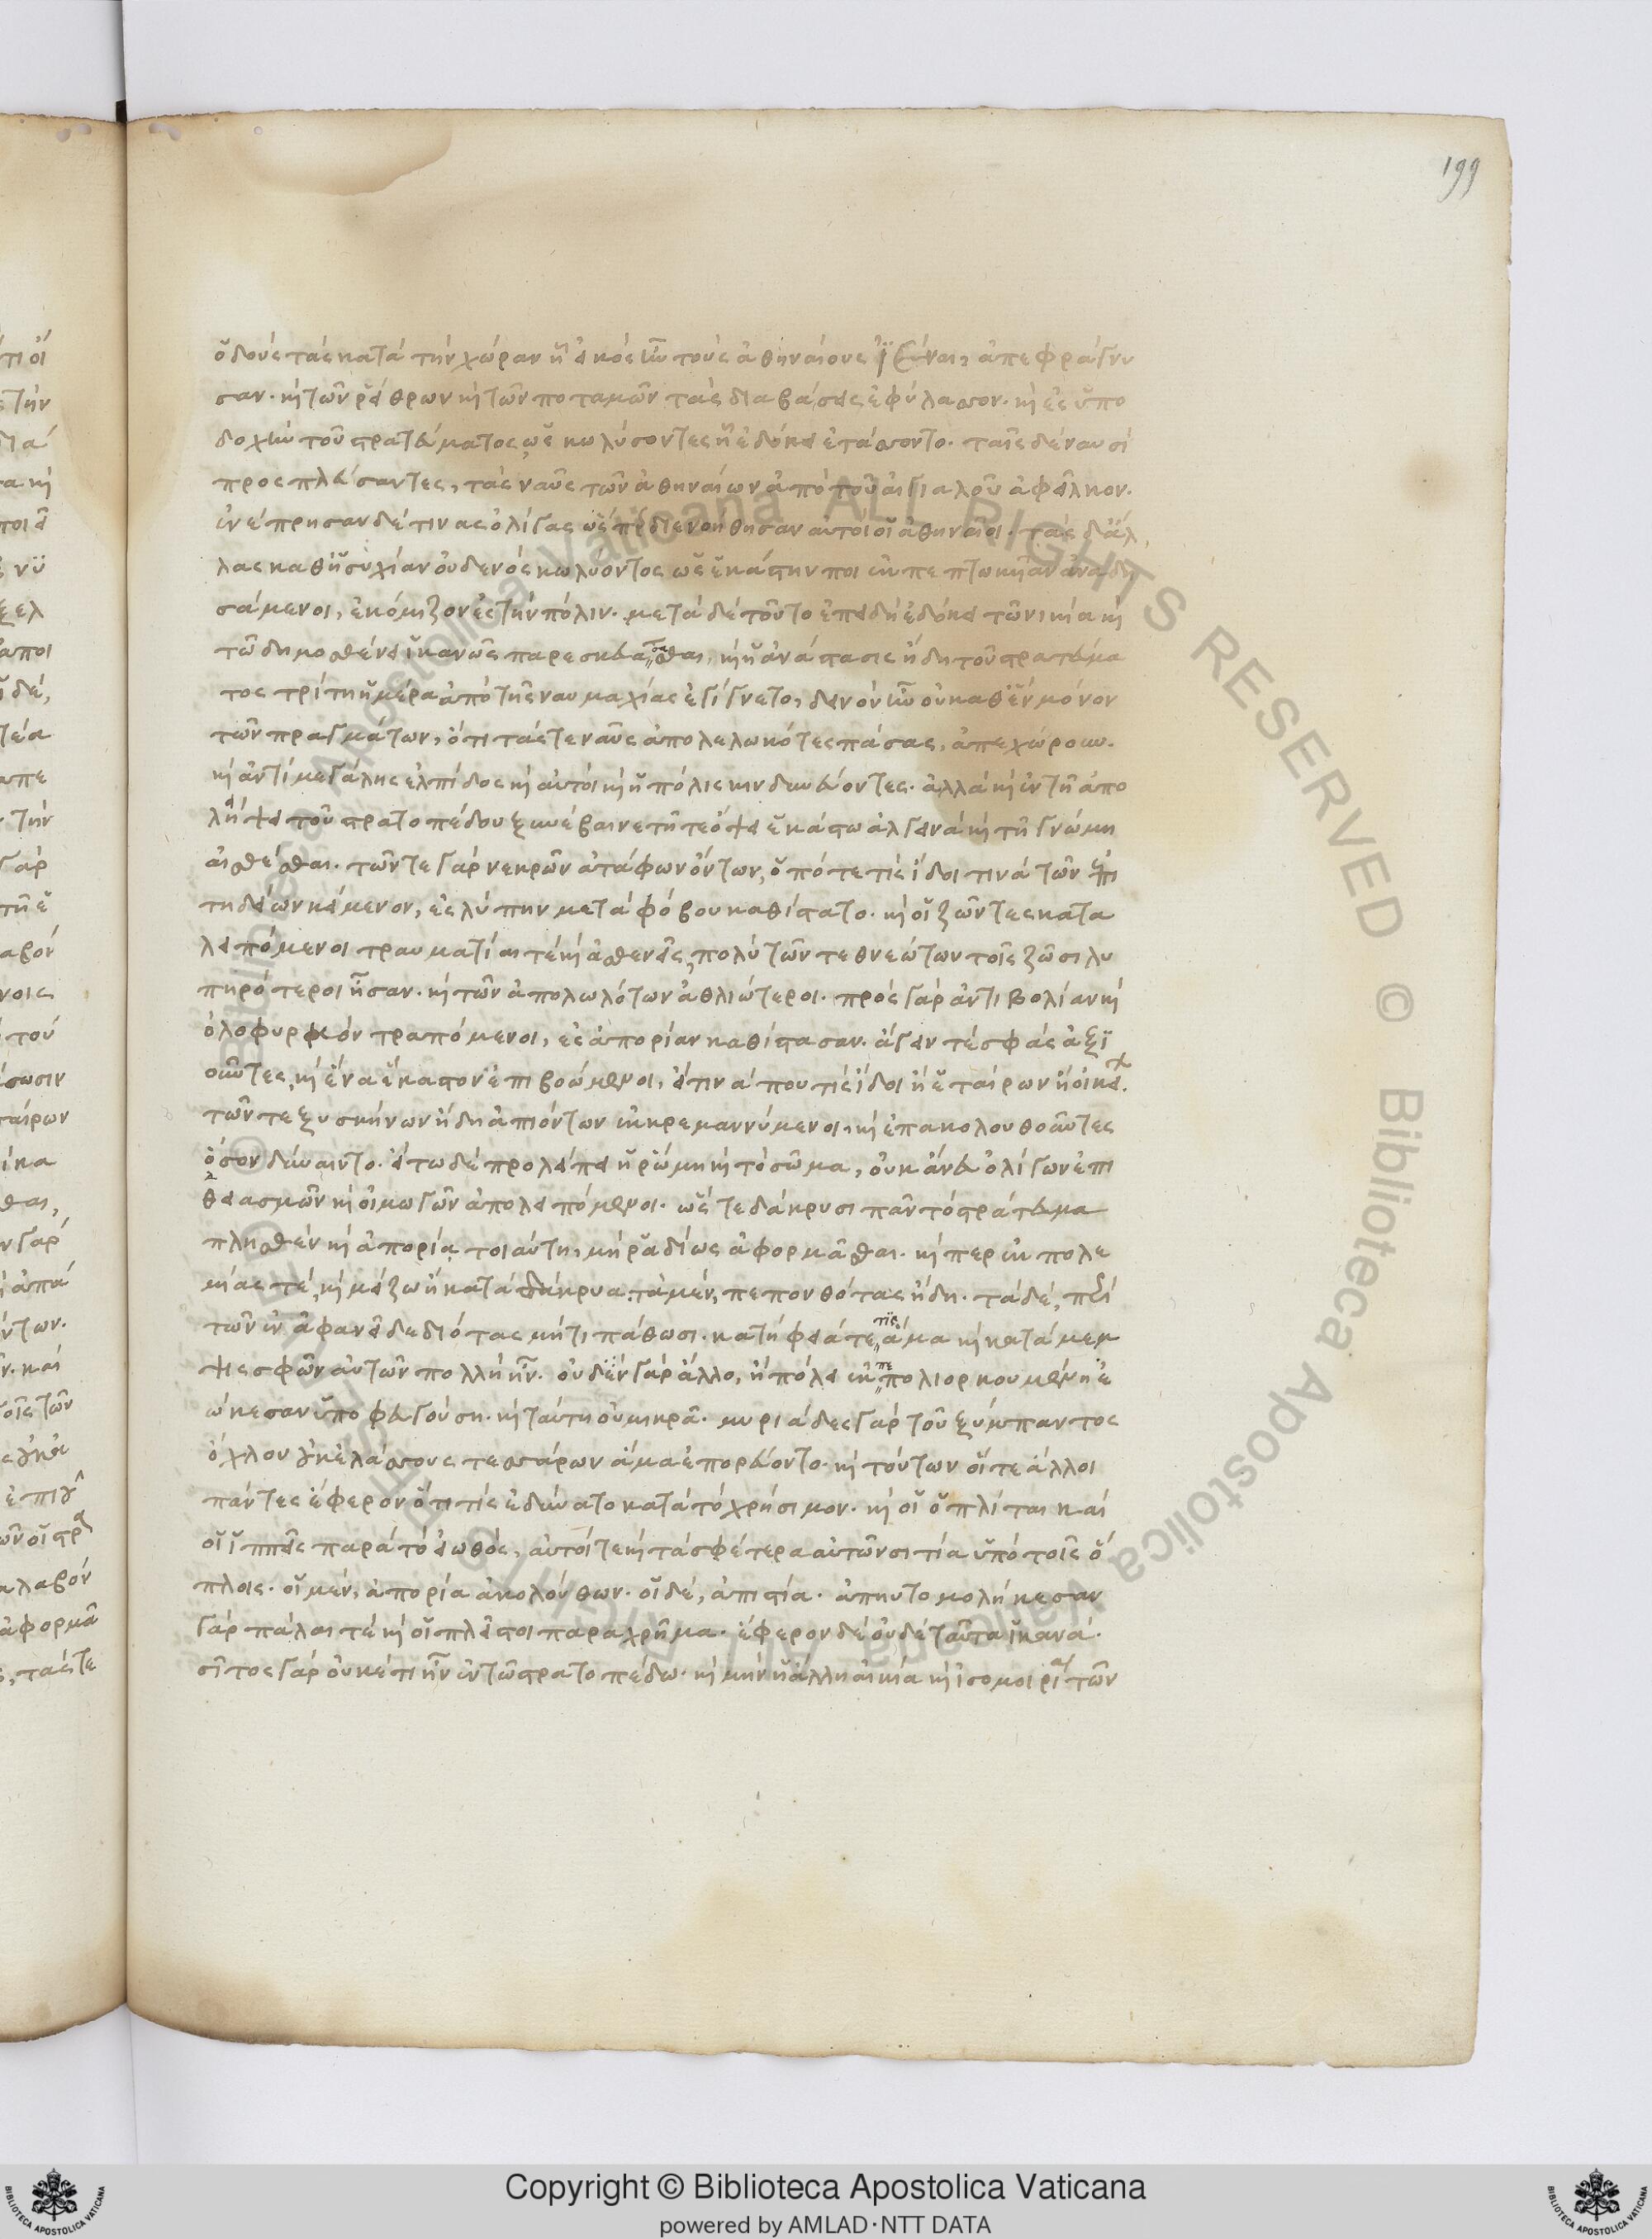 199
ὁδοὺς τὰς κατὰ τὴν χώραν ᾗ εἰκὸς ἦν τοὺς ἀθηναίους ἰέναι, ἀπεφράγνυ
σαν. καὶ τῶν ῥείθρων καὶ τῶν ποταμῶν τὰς διαβάσεις ἐφύλασσον. καὶ ἐς ὑπο
δοχὴν τοῦ στρατεύματος ὡς κωλύσοντες ᾗ ἐδόκει ἐτάσσοντο. ταῖς δὲ ναυσὶ
προσπλεύσαντες, τὰς ναῦς τῶν ἀθηναίων ἀπὸ τοῦ αἰγιαλοῦ ἀφεῖλκον.
ἐνέπρησαν δέ τινας ὀλίγας ὥσπερ διενοήθησαν αὐτοὶ οἱ ἀθηναῖοι. τὰς δ' ἄλ
λας καθ' ἡσυχίαν οὐδενὸς κωλύοντος ὡς ἑκάστην ποι ἐκπεπτωκυῖαν ἀναδη
σάμενοι, ἐκόμιζον ἐς τὴν πόλιν. μετὰ δὲ τοῦτο ἐπειδὴ ἐδόκει τῶ νικία καὶ
τῶ δημοσθένει ἱκανῶς παρεσκευάσθαι, καὶ ἡ ἀνάστασις ἤδη τοῦ στρατεύμα
τος τρίτη ἡμέρα ἀπὸ τῆς ναυμαχίας ἐγίγνετο, δεινὸν ἦν οὐ καθ' ἓν μόνον
τῶν πραγμάτων, ὅτι τάς τε ναῦς ἀπολελωκότες πάσας, ἀπεχώρουν.
καὶ ἀντὶ μεγάλης ἐλπίδος καὶ αὐτοὶ καὶ ἡ πόλις κινδυνεύοντες. ἀλλὰ καὶ ἐν τῆ ἀπο
λήψει τοῦ στρατοπέδου ξυνέβαινε τῆ τε ὄψει ἑκάστω ἀλγεινὰ καὶ τῆ γνώμη
αἰσθέσθαι. τῶν τε γὰρ νεκρῶν ἀτάφων ὄντων, ὁπότε τις ἴδοι τινὰ τῶν ἐπι
τηδείων κείμενον, ἐς λύπην μετὰ φόβου καθίστατο. καὶ οἱ ζῶντες κατα
λειπόμενοι τραυματίαι τὲ καὶ ἀσθενεῖς, πολὺ τῶν τεθνεώτων τοῖς ζῶσι λυ
πηρότεροι ἦσαν. καὶ τῶν ἀπολωλότων ἀθλιώτεροι. πρὸς γὰρ ἀντιβολίαν καὶ
ὀλοφυρμὸν τραπόμενοι, ἐς ἀπορίαν καθίστασαν. ἄγειν τὲ σφᾶς ἀξι
οῦντες, καὶ ἕνα ἕκαστον ἐπιβοώμενοι, εἴ τινά που τὶς ἴδοι ἢ ἑταίρων ἢ οἰκεί.
τῶν τε ξυσκήνων ἤδη ἀπιόντων ἐκκρεμαννύμενοι, καὶ ἐπακολουθοῦντες
ὅσον δύναιντο. εἴ τω δὲ προλείπει ἡ ῥώμη καὶ τὸ σῶμα, οὐκ ἄνευ ὀλίγων ἐπι
θειασμῶν καὶ οἰμωγῶν ἀπολειπόμενοι. ὥστε δάκρυσι πᾶν τὸ στράτευμα
πλησθὲν καὶ ἀπορία τοιαύτη, μὴ ῥαδίως ἀφορμᾶσθαι. καίπερ ἐκ πολε
μίας τὲ, καὶ μείζω ἢ κατὰ δάκρυα. τὰ μὲν, πεπονθότας ἤδη. τὰ δὲ, περὶ
τῶν ἐν ἀφανεῖ δεδιότας μή τι πάθωσι. κατήφειά τε τις ἅμα καὶ κατάμεμ
ψις σφῶν αὐτῶν πολλὴ ἦν. οὐδὲν γὰρ ἄλλο, ἢ πόλει ἐκπεπολιορκουμένη ἐ
ώκεσαν ὑποφευγούση. καὶ ταύτη οὐ μικρᾶ. μυριάδες γὰρ τοῦ ξύμπαντος
ὄχλου οὐκ ἐλάσσους τεσσάρων ἅμα ἐπορεύοντο. καὶ τούτων οἵ τε ἄλλοι
πάντες ἔφερον ὅτι τὶς ἐδύνατο κατὰ τὸ χρήσιμον. καὶ οἱ ὁπλῖται καὶ
οἱ ἱππεῖς παρὰ τὸ εἰωθὸς, αὐτοί τε καὶ τὰ σφέτερα αὐτῶν σιτία ὑπὸ τοῖς ὅ
πλοις. οἱ μὲν, ἀπορία ἀκολούθων. οἱ δὲ, ἀπιστία. ἀπηυτομολήκεσαν
γὰρ πάλαι τὲ καὶ οἱ πλεῖστοι παραχρῆμα. ἔφερον δὲ οὐδὲ ταῦτα ἱκανά.
σῖτος γὰρ οὐκέτι ἦν ἐν τῶ στρατοπέδω. καὶ μὴν ἡ ἄλλη αἰκία καὶ ἰσομοιρία τῶν
Copyright © Biblioteca Apostolica Vaticana
powered by AMLAD·NTT DATA